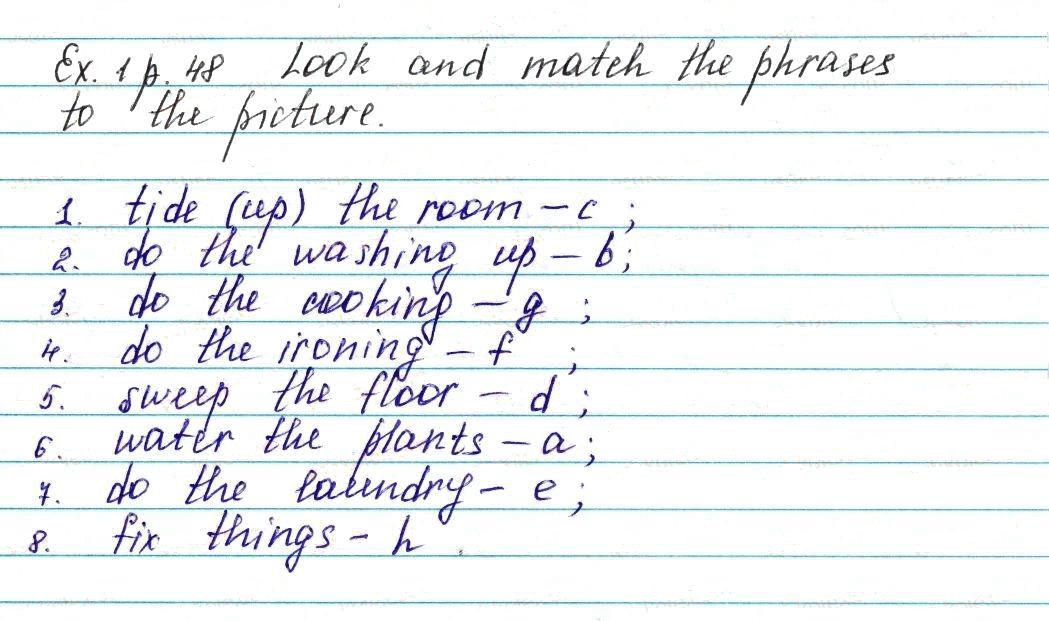 Ex. 1 p. 48 Look and match the phrases
to the picture.
1. tide (up) the room – c ;
2. do the washing up – b;
3. do the cooking – g ;
4. do the ironing – f ;
5. sweep the floor – d ;
6. water the plants – a ;
7. do the laundry – e ;
8. fix things – h .